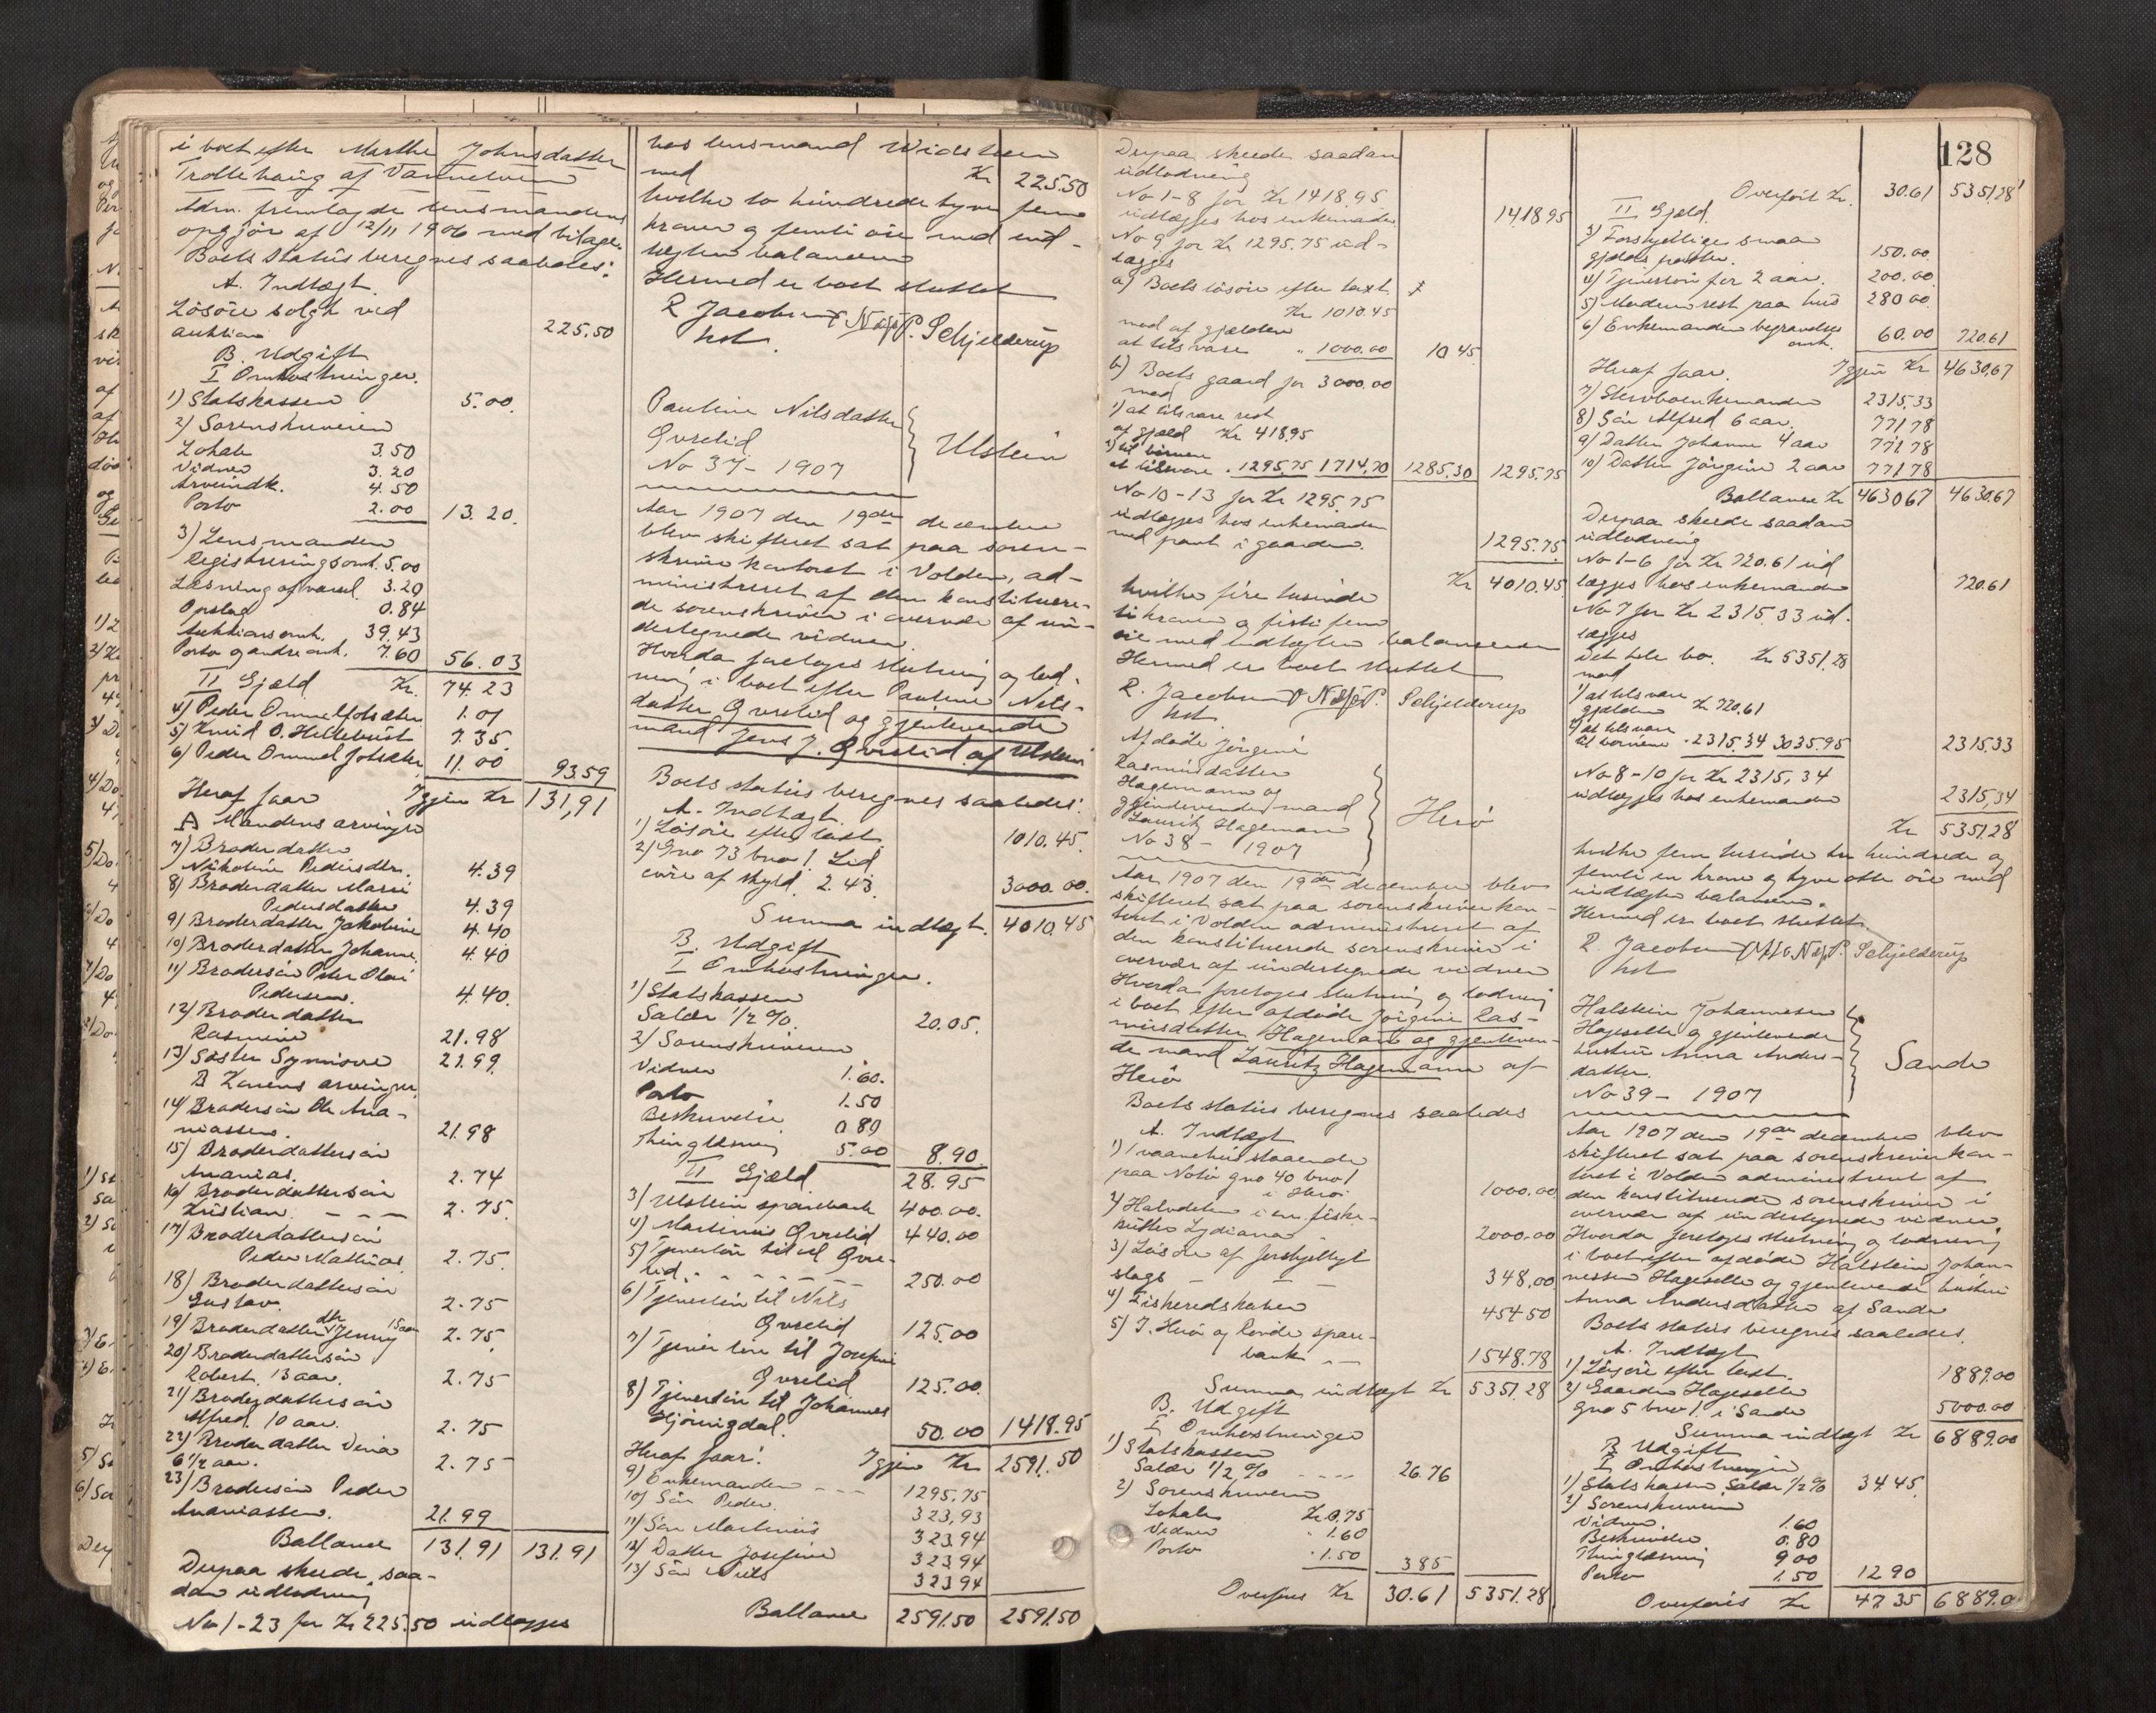 i boet efter Marthe Johnsdatter
Trollehaug af Vannelven
Adm. fremlagde lensmandens
opgjør af 12/11 1906 med bilage.
Boets status beregnes saaledes:
A. Indtægt.
Løsøre solgt ved
auktion 225.50
B. Udgift
I Omkostninger.
1) Statskassen 5.00.
2) Sorenskriveren
Lokale 3.50
Vidner 3.20
Arveindk. 4.50
Porto 2.00 13.20.
3) Lensmanden
Registreringsomk. 5.00
Læsning af varsel 3.20
Opslag 0.84
Auktionsomk. 39.43
Porto og andre omk. 7.60 56.03
II Gjæld Kr. 74.23
4) Peder Ommelfotsæter 1.01
5) Knud O. Hellebust 7.35
6) Peder Ommelfotsæter 11.00 93.59
Heraf faar Igjen Kr 131,91
A Mandens arvinger
7) Broderdatter
Nikoline Pedersdtr. 4.39
8) Broderdatter Marie
Pedersdatter 4.39
9) Broderdatter Jakobine 4.40
10) Broderdatter Johanne 4.40
11) Brodersøn Peter Olai
Pedersen. 4.40.
12) Broderdatter
Rasmine 21.98
13) Søster Synnøve 21.99.
B Konens arvinger.
14) Brodersøn Ole Ana-
niassen. 21.98
15) Broderdattersøn
Ananias. 2.74
16) Broderdattersøn
Kristian. - - - 2.75.
17) Broderdattersøn
Peder Mathias 2.75.
18) Broderdattersøn
Gustav. 2.75
19) Broderdatter dtr Jenny 15 aar 2.75.
20) Broderdattersøn
Robert. 13 aar. 2.75
21) Broderdattersøn
Alfred. 10 aar. 2.75
22) Broderdatter Vina
6 1/2 aar. 2.75
23) Brodersøn Peder
Ananiassen. 21.99
Ballance 131.91 131.91
Derpaa skeede saa-
dan udlodning
No 1-23 for Kr 225.50 udlægges
hos lensmand Widsteen
med Kr 225.50
hvilke to hundrede tyve fem
kroner og femti øre med ind-
tægten balancerer
Hermed er boet sluttet
R Jacobsen Schjelderup
kst.
Pauline Nilsdatter
Øvrelid
No 37 - 1907
Ulstein
Aar 1907 den 19de december
blev skifteret sat paa soren-
skriverkontoret i Volden, ad-
ministreret af den konstituere-
de sorenskriver i overvær af un-
dertegnede vidner.
Hvorda foretoges slutning og lod-
ning i boet efter Pauline Nils-
datter Øvrelid og gjenlevende
mand Jens J. Øvrelid af Ulstein
Boets status beregnes saaledes:
A. Indtægt.
1) Løsøre efter taxt 1010.45.
2) Gno 73 bno 1. Lid
øvre af skyld. 2.43. 3000.00.
Summa indtægt. 4010.45
B. Udgift
I Omkostninger.
1) Statskassen
Salær 1/2 %. 20.05.
2) Sorenskriveren
Vidner 1.60.
Porto 1.50
Beskrivelse. 0.80
Thinglæsning 5.00 8.90.
II Gjæld 28.95
3) Ulstein sparebank 400.00.
4) Martinus Øvrelid 440.00
5) Tjenerløn til El Øvre-
lid. - - - - - - 250.00
6) Tjenerløn til Nils
Øvrelid 125.00
7) Tjenerløn til Josefine
Øvrelid 125.00.
8) Tjenerløn til Johannes
Hjørungdal. 50.00 1418.95
Heraf faar: Igjen Kr 2591.50
9) Enkemanden - - - 1295.75
10) Søn Peder. 323,93
11) Søn Martinus 323.94
12) Datter Josefine 323.94
13) Søn Nils 323.94
Ballance 2591.50 2591.50
Derpaa skeede saadan
udlodning
No 1-8 for Kr 1418.95.
udlægges hos enkemanden 1418.95
No 9 for Kr 1295.75 ud-
lægges
a) Boets løsøre efter taxt.
Kr 1010.45
mod af gjælden
at tilsvare " 1000.00 10.45
b) Boets gaard for 3000.00
mod
1) at tilsvare rest
af gjæld Kr 418.95
2) til børnene
at tilsvare . 1295.75 1714,70 1285.30 1295.75
No 10-13 for Kr 1295.75
udlægges hos enkemanden
med pant i gaarden. 1295.75
Kr 4010.45
hvilke fire tusinde
ti kroner og firti fem
øre med indtægten balancerer
Hermed er boet sluttet
R. Jacobsen Schjelderup
kst.
Afdøde Jørgine
Rasmusdatter
Hagemann og
gjenlevende mand
Lauritz Hagemann
No 38 - 1907
Herø
Aar 1907 den 19de december blev
skifteret sat paa sorenskriverkon-
toret i Volden administreret af
den konstituerede sorenskriver i
overvær af undertegnede vidner
Hvorda foretoges slutning og lodning
i boet efter afdøde Jørgine Ras-
musdatter Hagemann og gjenleven-
de mand Lauritz Hagemann af
Herø
Boets status beregnes saaledes
A. Indtægt
1) 1 vaanehus staaende
paa Notø gno 40 bno 1
i Herø 1000.00
2) Halvdelen i en fiske-
kutter Lydiana. 2000.00
3) Løsøre af forskjelligt
slags - - - 348.00
4) Fiskeredskaber 454.50
5) I Herø og Røvde spare-
bank - - 1548.78
Summa indtægt Kr 5351.28
B. Udgift
I Omkostninger
1) Statskassen
Salær 1/2 % - - - - 26.76
2) Sorenskriveren
Lokale Kr 0.75
Vidner " 1.60
Porto " 1.50 3.85
Overføres Kr 30.61 5351.28
128
Overført Kr. 30.61 5351.28
II Gjæld.
3) Forskjellige smaa
gjældsposter. 150.00
4) Tjenerløn for 2 aar. 200.00
5) Moderen rest paa hus 280.00
6) Enkemanden begravelses
omk. 60.00 720.61
Heraf faar. Igjen Kr 4630.67
7) Stervboenkemanden 2315,33
8) Søn Alfred 6 aar. 771 78
9) Datter Johanne 4 aar 771 78
10) Datter Jørgine 2 aar 771 78
Ballance Kr 4630 67 4630.67
Derpaa skeede saadan
udlodning
No 1-6 for Kr 720.61 ud
lægges hos enkemanden 720.61
No 7 for Kr 2315.33 ud-
lægges
Det hele bo. Kr 5351.28
mod
1) at tilsvare
gjælden Kr 720.61
2) at tilsvare
til børnene . 2315.34 3035.95 2315.33
No 8-10 for Kr 2315,34
udlægges hos enkemanden 2315,34
Kr 5351.28
hvilke fem tusinde tre hundrede og
femti en krone og tyve otte øre med
indtægten balancerer.
Hermed er boet sluttet.
R. Jacobsen Schjelderup
kst
Halstein Johannessen
Hageselle og gjenlevende
hustru Anna Anders-
datter.
No 39 - 1907
Sande
Aar 1907 den 19de december blev
skifteret sat paa sorenskriverkon-
toret i Volden administreret af
den konstituerede sorenskriver i
overvær af undertegnede vidner.
Hvorda foretoges slutning og lodning
i boet efter afdøde Halstein Johan-
nessen Hageselle og gjenlevende hustru
Anna Andersdatter af Sande
Boets status beregnes saaledes.
A. Indtægt
1) Løsøre efter taxt. 1889.00
2) Gaarden Hageselle
Gno 5 bno 1. i Sande 5000.00
Summa indtægt Kr 6889.00
B. Udgift
I Omkostninger
1) Statskassen Salær 1/2 % 34.45.
2) Sorenskriveren
Vidner. 1.60
Beskrivelse 0.80
Thinglæsning 9.00
Porto 1.50 12 90
Overføres Kr 47 35 6889.0